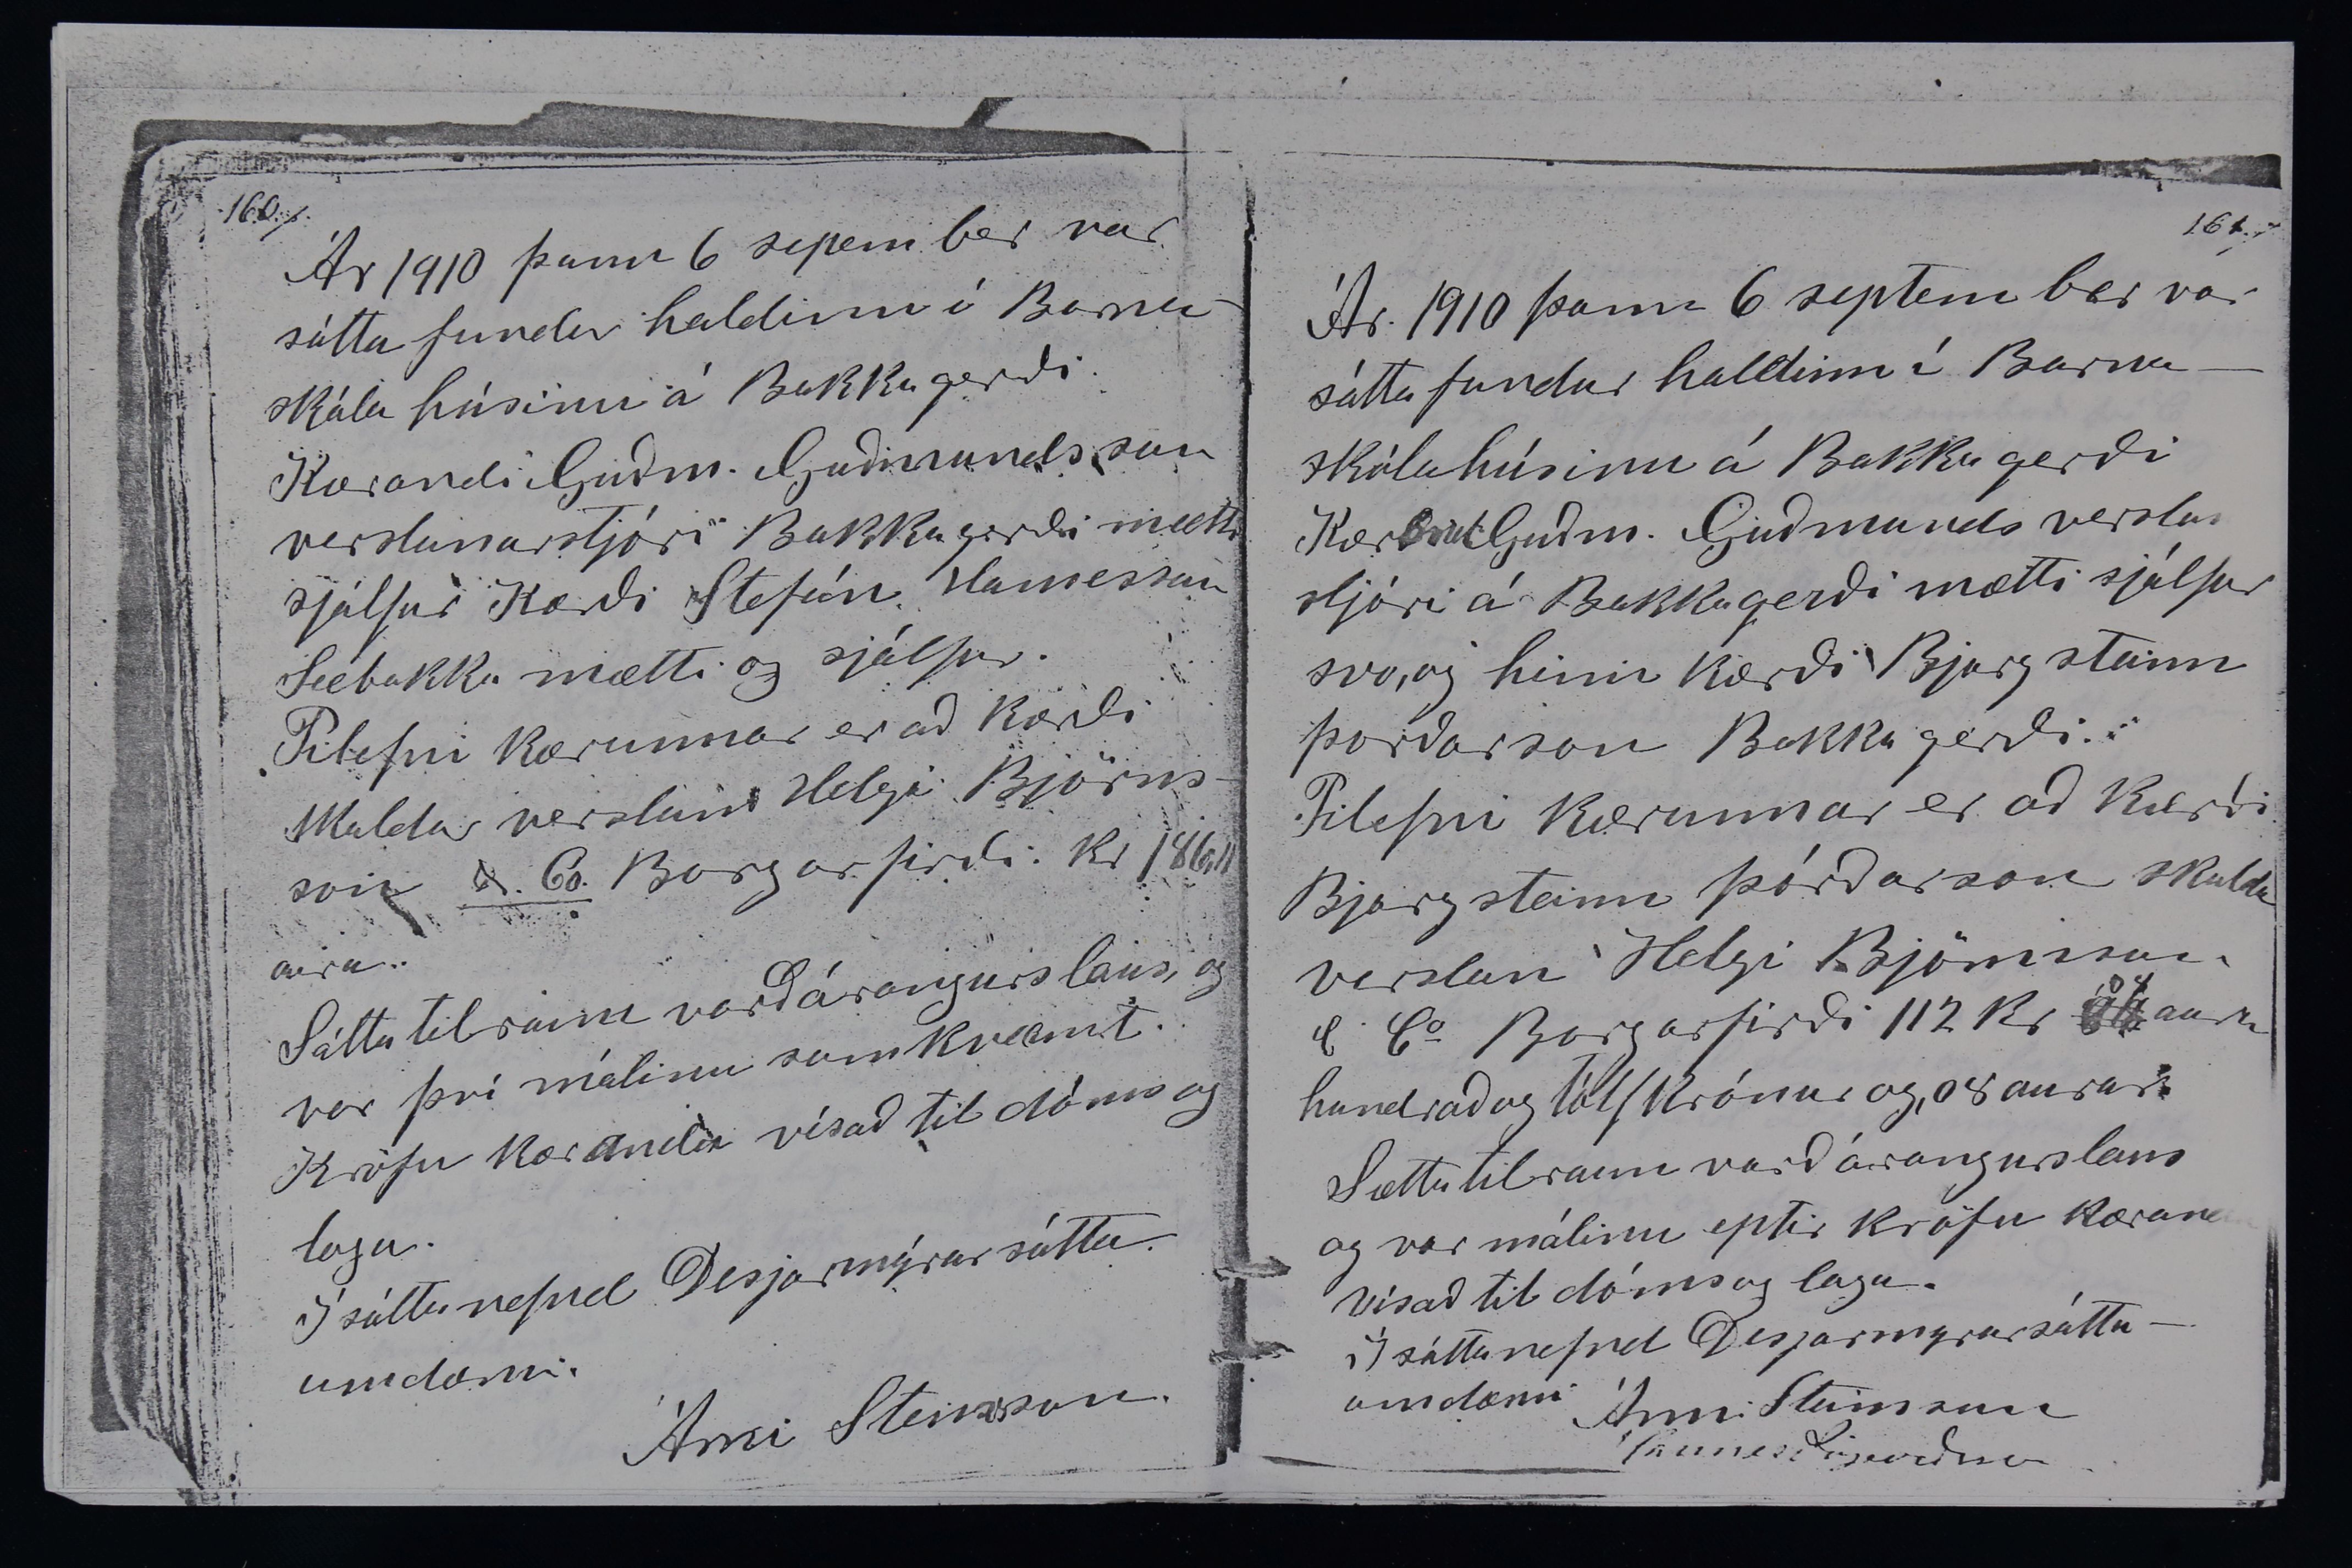 160./.
Ár 1910 þann 6 sepember var
sátta fundur haldinn í Barna-
skóla húsinu á Bakkagerði.
Kærandi Guðm. Guðmundsson
verslunarstjóri Bakkagerði mætti
sjálfur Kærði Stefán Hannesson
Sæbakka mætti og sjálfur.
Tilefni Kærunnar er að Kærði
skuldar verslun Helgi Björns-
son & Co. Borgarfirði. Kr 186,11
aura..
Sátta tilraun varð árangurslaus, og
var því málinu samkvæmt.
Kröfu Kæranda vísað til dóms og
laga.
Í sáttanefnd Desjarmýrar sátta-
umdæmi.
Árni Steinsson.
161./.
Ár. 1910 þann 6 september var
sáttafundur haldinn í Barna-
skólahúsinu á Bakkagerði
Guðm. Guðmunds verslun
stjóri á Bakkagerði mætti sjálfur
svo, og hinn Kærði Bjargsteinn
þorðarson Bakkagerði.
Tilefni Kærunnar er að Kærði
Bjargsteinn þórðarson skulda
verslun Helgi Björnsson
& Co Borgarfirði 112 Kr 08 aura
hundrað og tólf Krónur og, 08 aurar.
Sætta tilraun varð árangurslaus
og var málinu eptir Kröfu Kæranda
vísað til dóms og laga.
Í sáttanefnd Desjarmýrarsátta-
umdæmi
Árni Steinsson
Hannes Sigurðsson